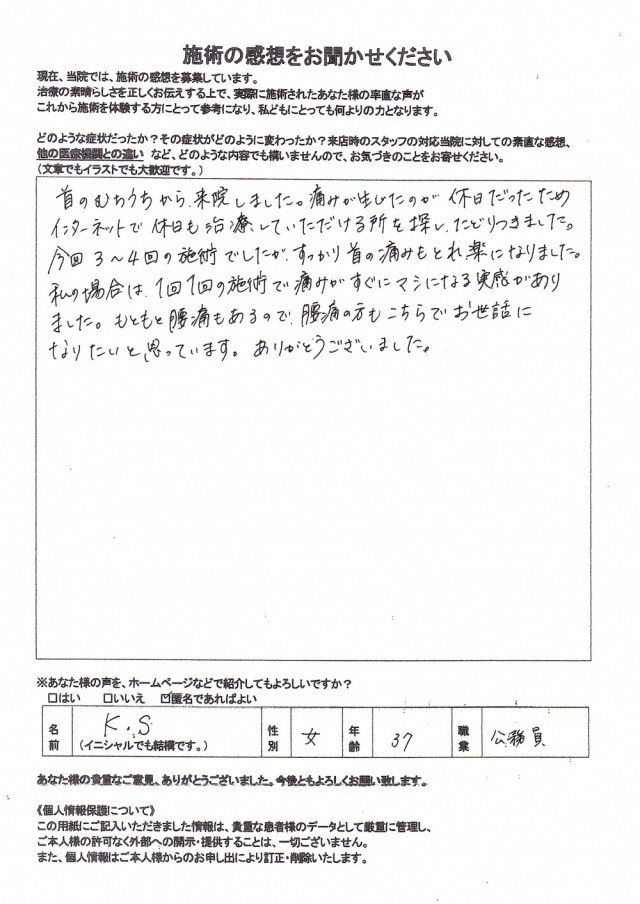 施術の感想をお聞かせください
現在、当院では、施術の感想を募集しています。
治療の素晴らしさを正しくお伝えする上で、実際に施術されたあなた様の率直な声が
これから施術を体験する方にとって参考になり、私どもにとっても何よりの力となります。
どのような症状だったか？その症状がどのように変わったか？来店時のスタッフの対応当院に対しての素直な感想、
他の医療機関との違い など、どのような内容でも構いませんので、お気づきのことをお寄せください。
（文章でもイラストでも大歓迎です。）
首のむちうちから、来院しました。痛みが生じたのが 休日だったため
インターネットで 休日も治療していただける所を探し、たどりつきました。
今回 3～4回の施術でしたが、すっかり首の痛みもとれ、楽になりました。
私の場合は、1回1回の施術で痛みがすぐにマシになる実感があり
ました。もともと腰痛もあるので、腰痛の方もこちらでお世話に
なりたいと思っています。ありがとうございました。
※あなた様の声を、ホームページなどで紹介してもよろしいですか？
□はい □いいえ ☑匿名であればよい
名前 K.S （イニシャルでも結構です。） 性別 女 年齢 37 職業 公務員
あなた様の貴重なご意見、ありがとうございました。今後ともよろしくお願い致します。
《個人情報保護について》
この用紙にご記入いただきました情報は、貴重な患者様のデータとして厳重に管理し、
ご本人様の許可なく外部への開示・提供することは、一切ございません。
また、個人情報はご本人様からのお申し出により訂正・削除いたします。